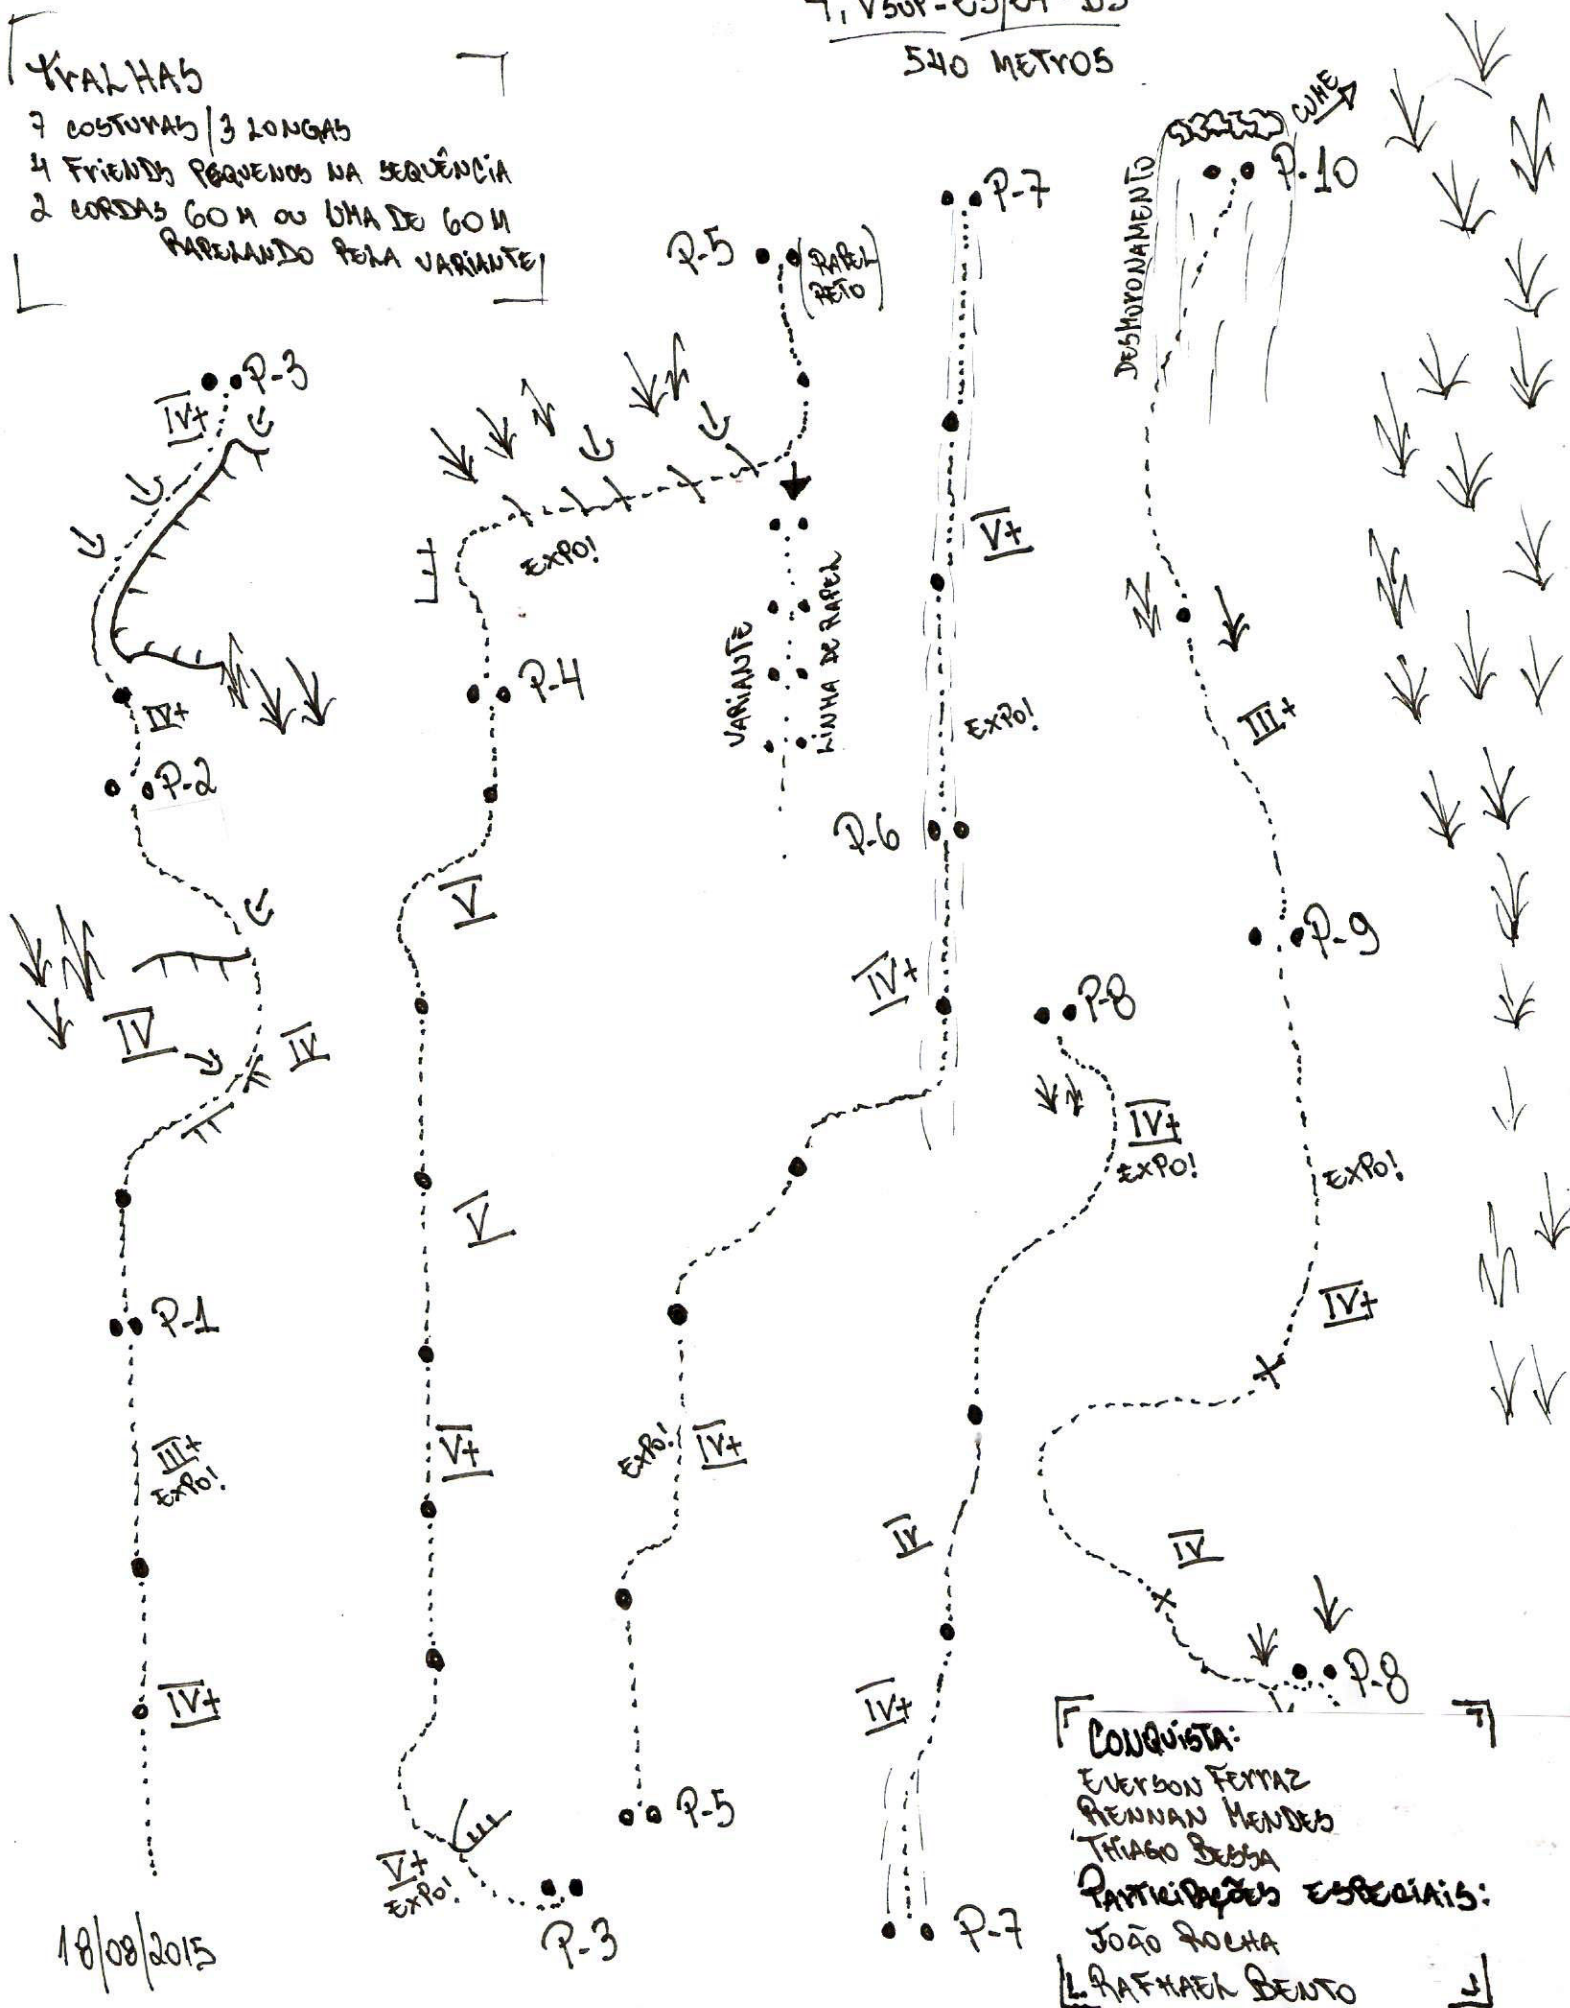 540 METROS
TRALHAS
7 COSTURAS/3 LONGAS
4 FRIENDS PEQUENOS NA SEQUÊNCIA
2 CORDAS 60 M OU UMA DE 60 M
RAPELANDO PELA VARIANTE
P-3
IV+
IV+
P-2
IV
IV
P-1
III+
EXPO!
IV+
18/08/2015
P-5
(RAPEL
RETO)
EXPO!
VARIANTE
LINHA DE RAPEL
P-4
V
V
V+
V+
EXPO!
P-3
P-7
V+
EXPO!
P-6
IV+
EXPO!
IV+
P-5
P-8
IV+
EXPO!
IV
IV+
P-7
CUME
P-10
DESMORONAMENTO
III+
P-9
EXPO!
IV+
IV
P-8
CONQUISTA:
EVERSON FERRAZ
RENNAN MENDES
THIAGO BESSA
PARTICIPAÇÕES ESPECIAIS:
JOÃO ROCHA
RAFHAEL BENTO